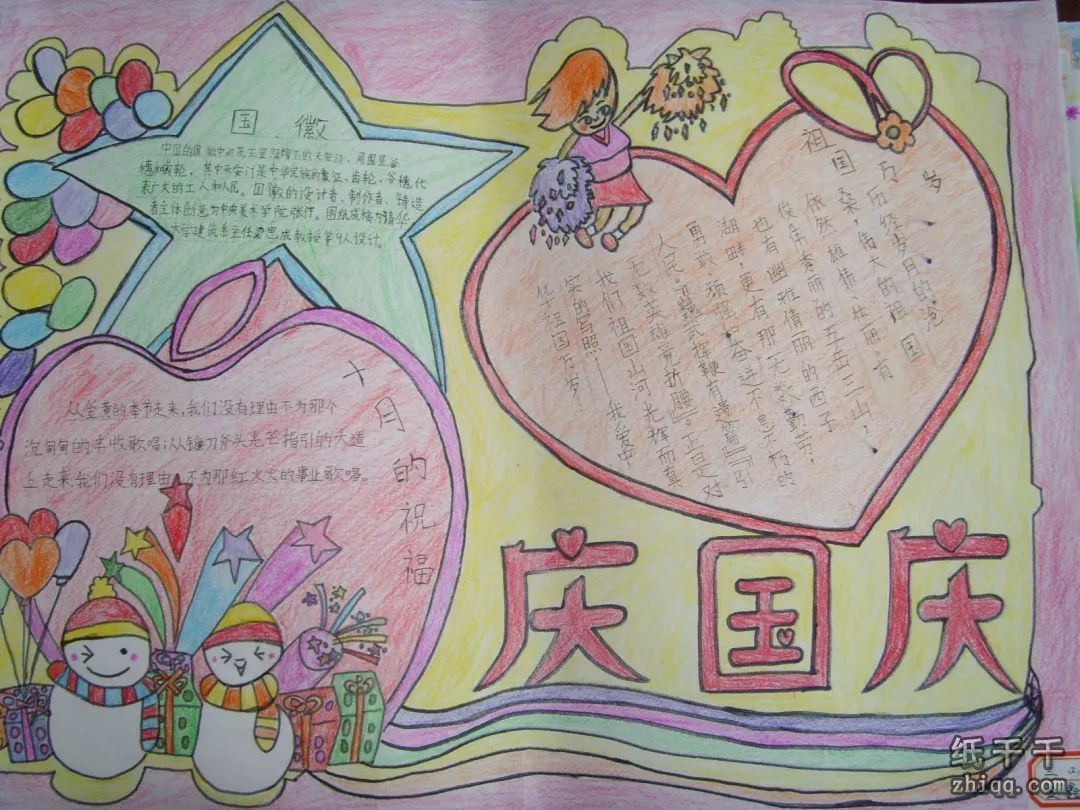 国 徽
中国的国徽中间是五星照耀下的天安门、周围是谷
穗和齿轮，其中天安门是中华民族的象征、齿轮、谷穗代
表广大的工人和人民。国徽的设计者、制作者、铸造
者主体创意为中央美术学院张仃。图纸成稿为清华
大学建筑系主任梁思成教授等9人设计。
十月的祝福
从金黄的季节走来，我们没有理由不为那个
沉甸甸的丰收歌唱；从镰刀斧头光芒指引的大道
上走来、我们没有理由、不为那红火火的事业歌唱。
祖国万岁
历经岁月的沧
桑，伟大的祖国
依然雄伟、壮丽。有
俊伟秀丽的五岳三山，
也有幽雅倩丽的西子
湖畔，更有那无数勤劳，
勇敢、顽强、奋进不息不朽的
人民。“魏武挥鞭有遗篇”“引
无数英雄竞折腰”。正是对
我们祖国山河光辉而真
实的写照——我爱中
华祖国万岁！
庆国庆
纸干干
zhiqq.com